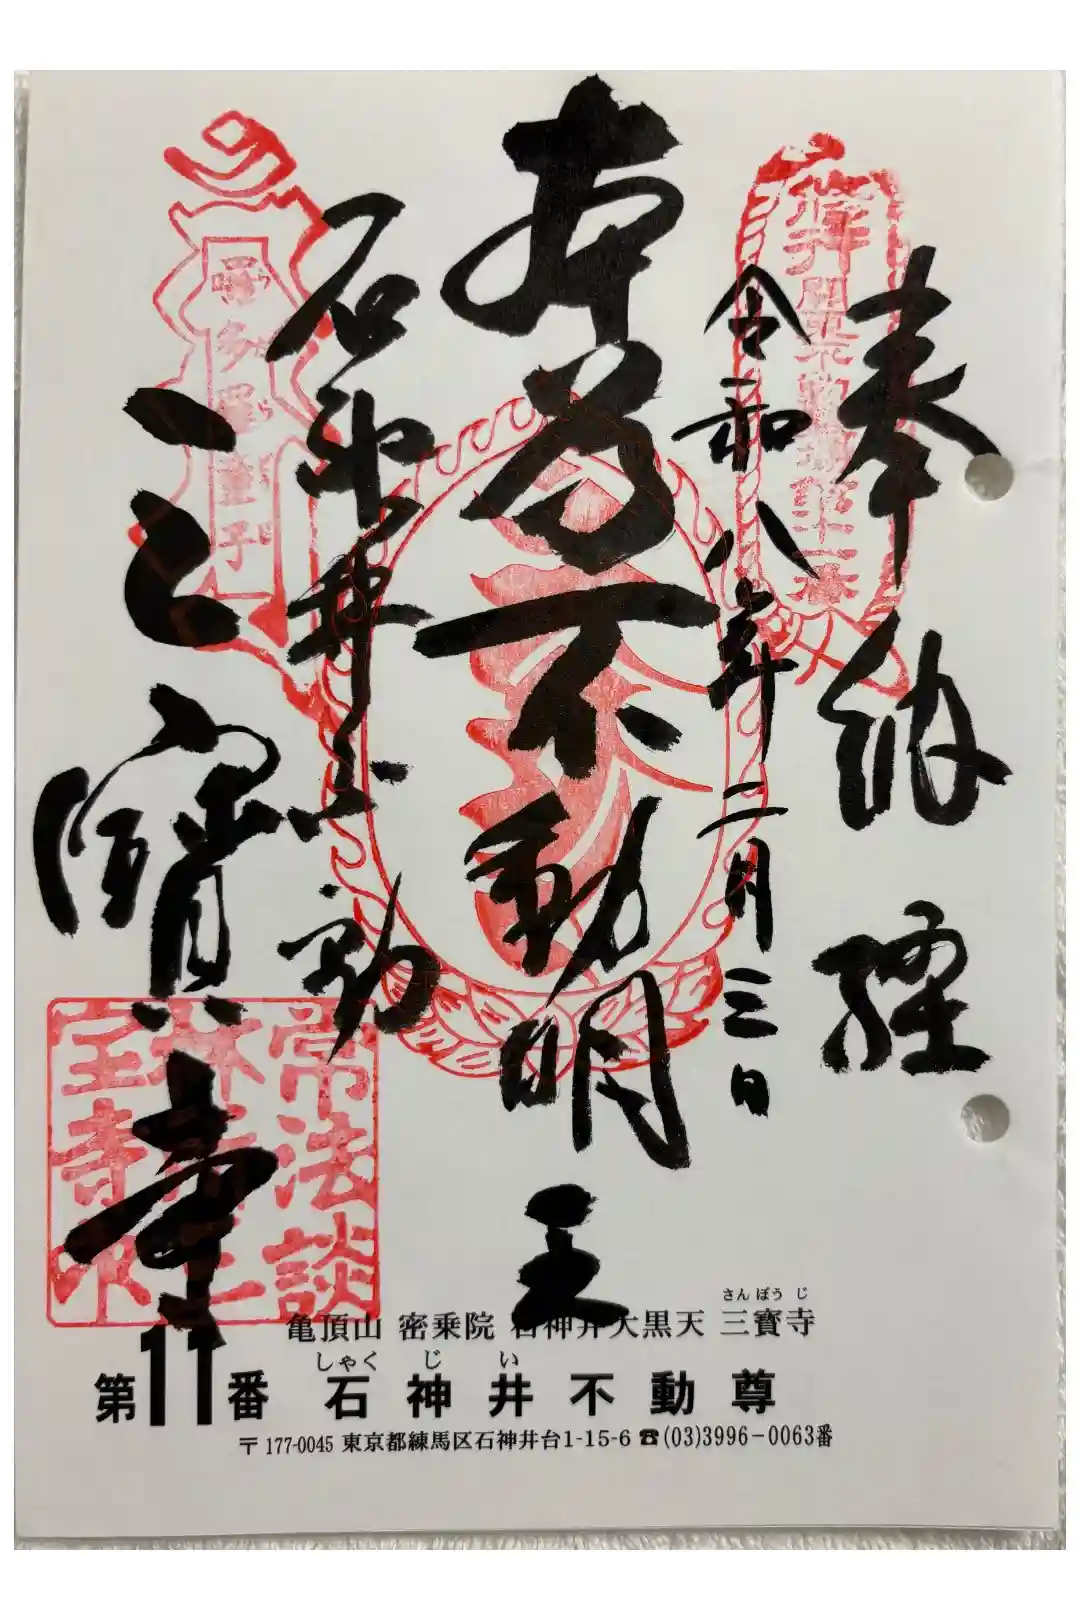 奉納経
令和八年二月三日
本尊不動明王
石神井不動
三寳寺
関東霊場第十一番
多羅童子
常法談
林
寺
亀頂山 密乗院 石神井大黒天 三寳寺
さんぼうじ
第11番 石神井不動尊
しゃくじい
〒177-0045 東京都練馬区石神井台1-15-6 ☎(03)3996-0063番